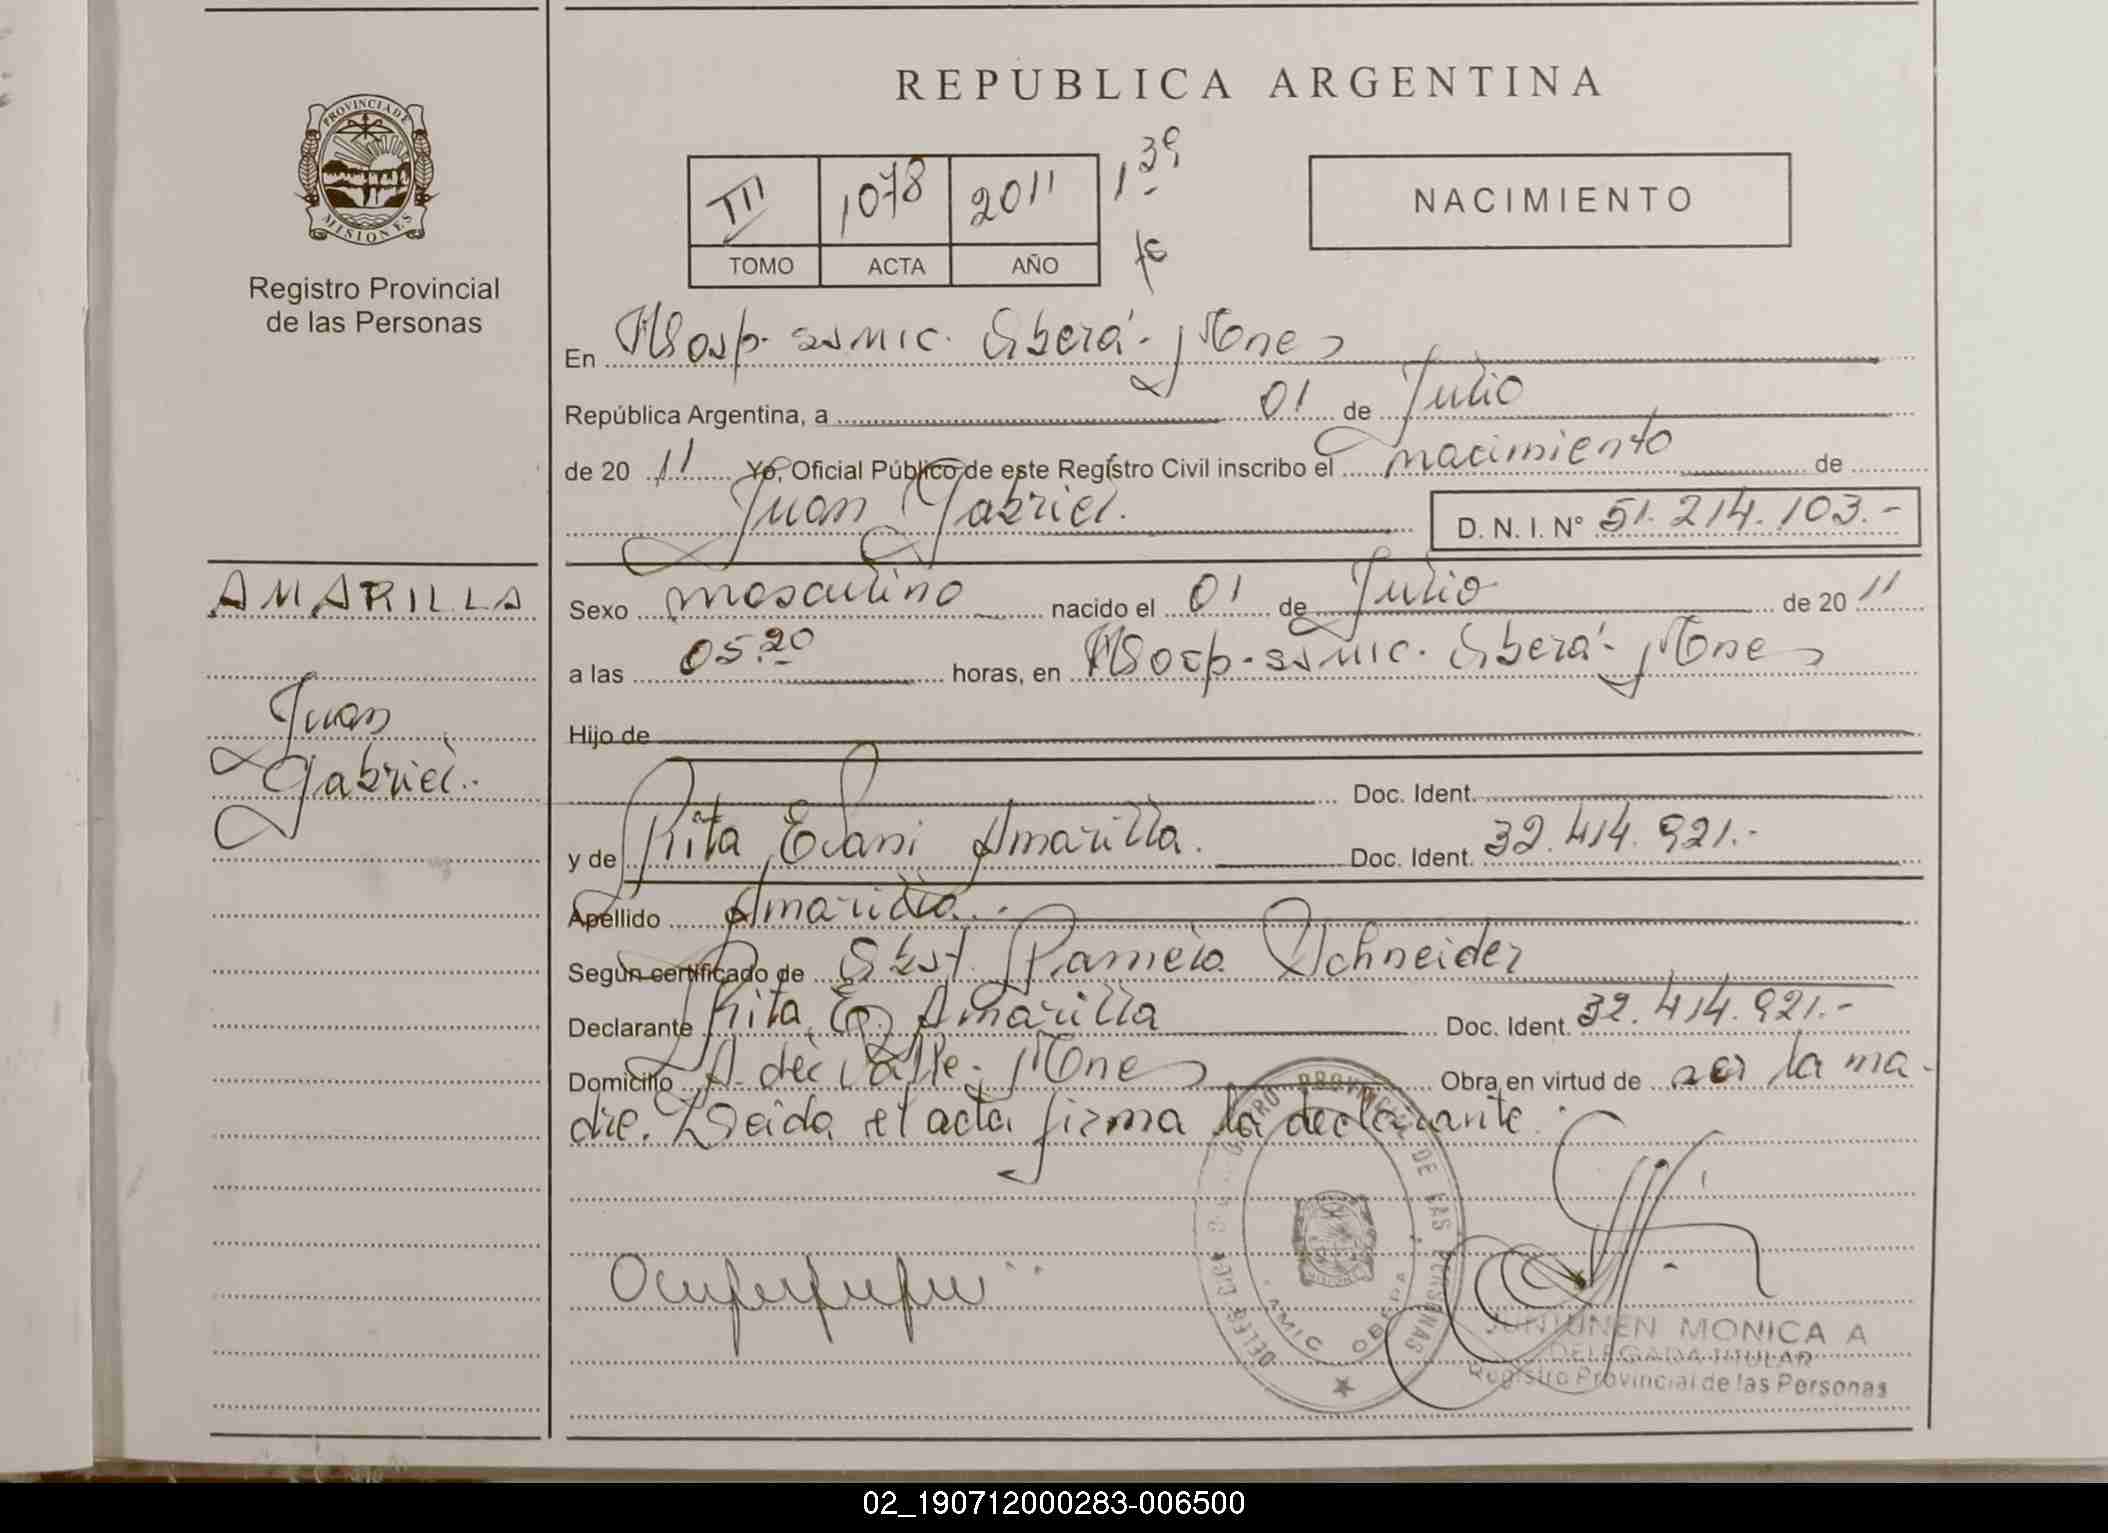 PROVINCIA DE
MISIONES
Registro Provincial
de las Personas
AMARILLA
Juan
Gabriel.
REPUBLICA ARGENTINA
III 1078 2011
TOMO ACTA AÑO
NACIMIENTO
En Hosp. SAMIC. Oberá - Mnes
República Argentina, a 01 de Julio
de 20 11 Yo, Oficial Público de este Registro Civil inscribo el nacimiento de
Juan Gabriel. D. N. I. N° 51.214.103.-
Sexo masculino nacido el 01 de Julio de 20 11
a las 05.20 horas, en Hosp. SAMIC. Oberá - Mnes
Hijo de
Doc. Ident.
y de Rita Evani Amarilla. Doc. Ident. 32.414.921.-
Apellido Amarilla.
Según certificado de Obst. Pamela Schneider
Declarante Rita E. Amarilla Doc. Ident. 32.414.921.-
Domicilio A. del Valle - Mnes Obra en virtud de ser la ma-
dre. Leida el acta firma la declarante.
REGISTRO PROVINCIAL DE LAS PERSONAS
SAMIC OBERA
JUNTUNEN MONICA A
DELEGADA TITULAR
Registro Provincial de las Personas
02_190712000283-006500